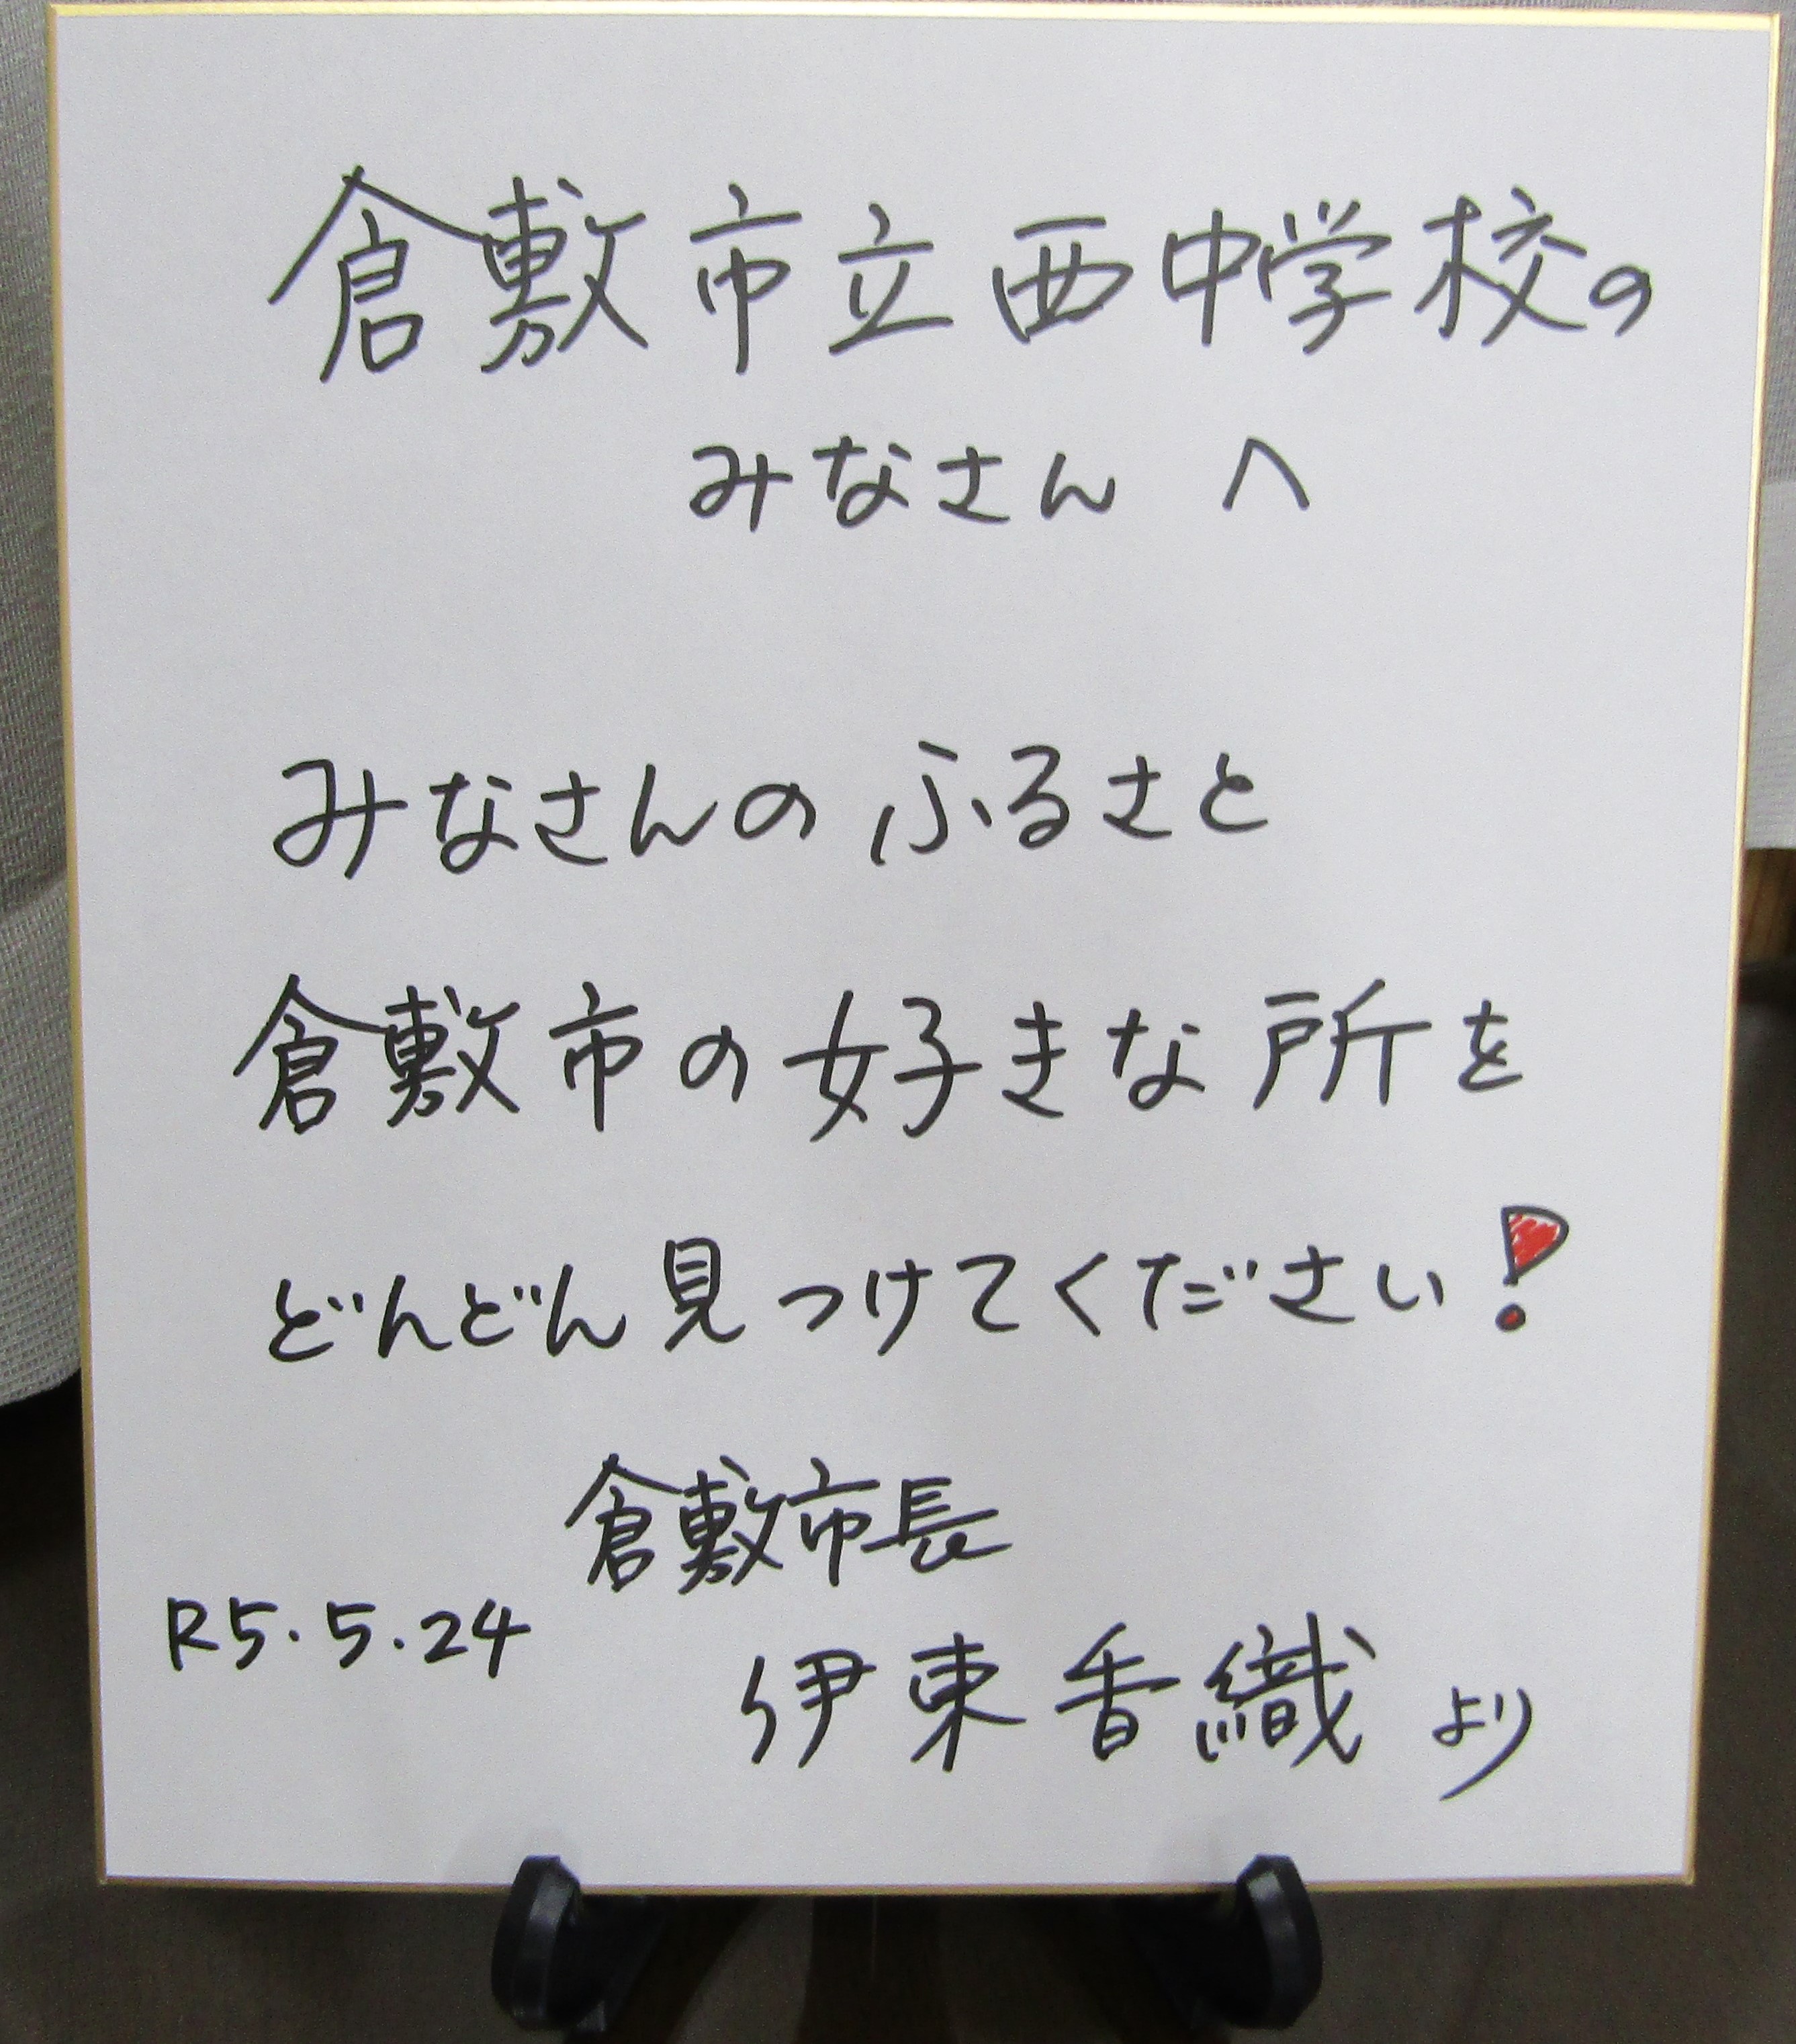 倉敷市立西中学校の
みなさんへ
みなさんのふるさと
倉敷市の好きな所を
どんどん見つけてください!
倉敷市長
R5.5.24
伊東香織より